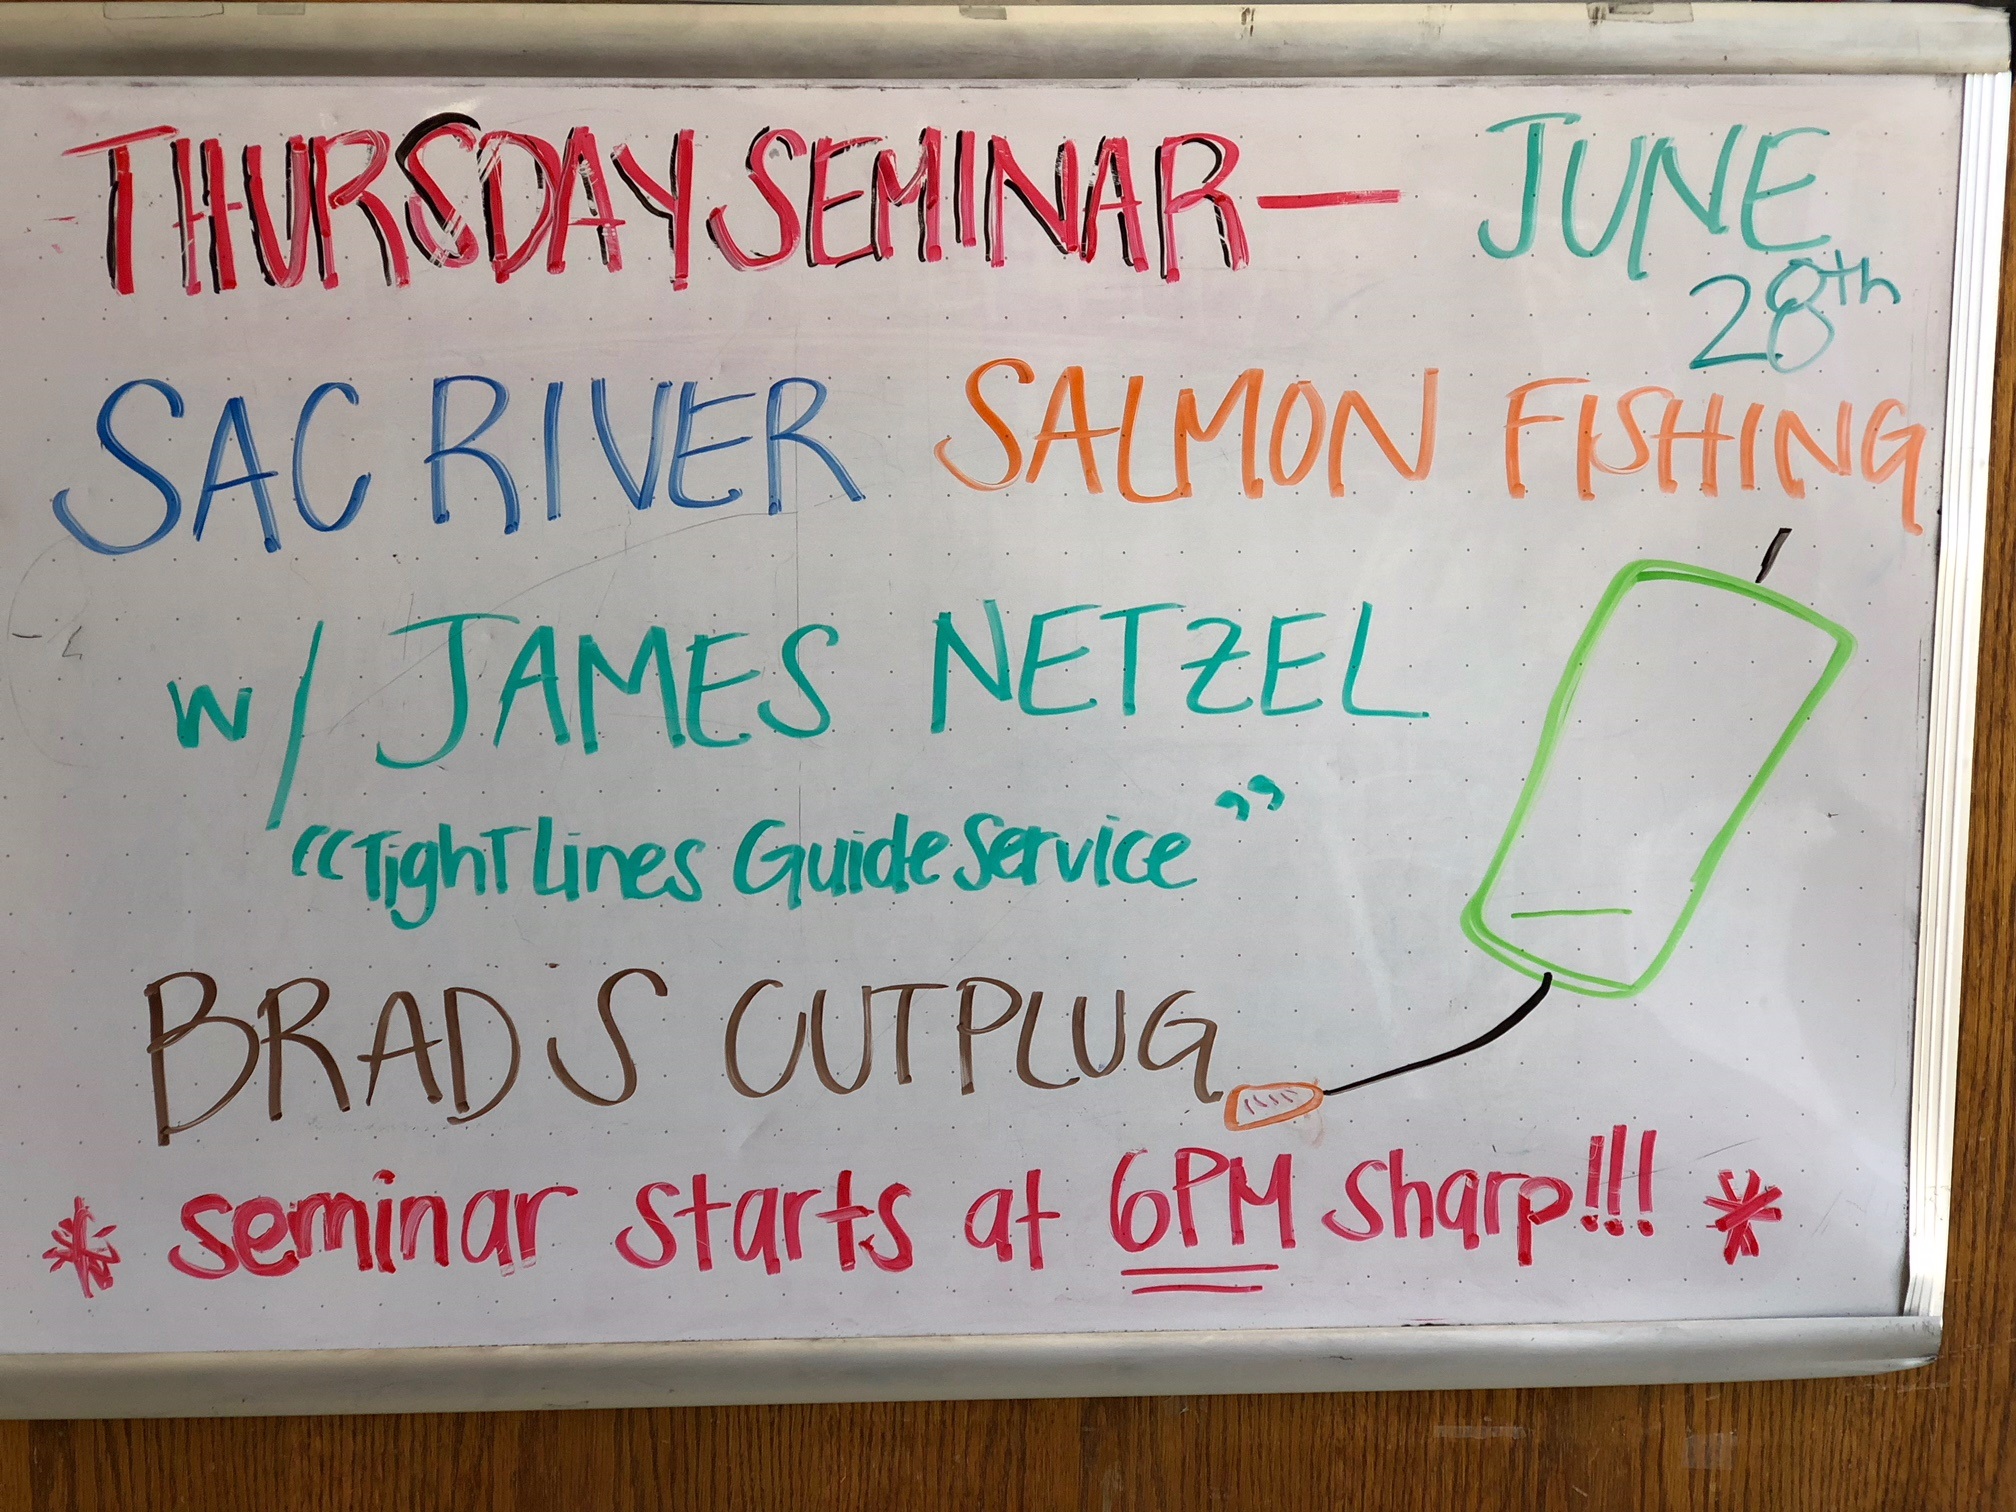 THURSDAY SEMINAR — JUNE
28th
SAC RIVER SALMON FISHING
w/ JAMES NETZEL
"TighT Lines Guide Service"
BRAD'S CUTPLUG
* seminar starts at 6PM sharp!!! *